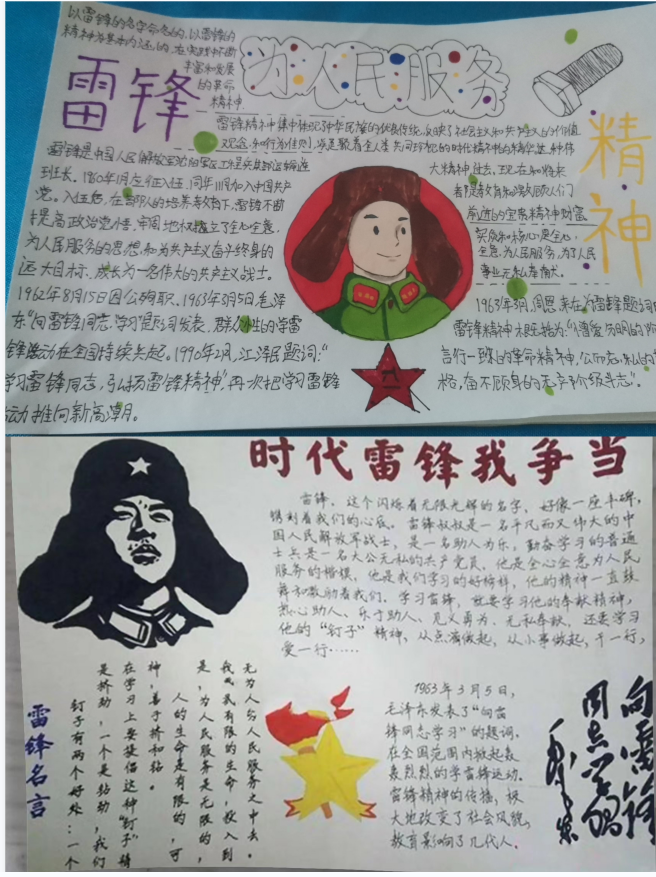 以雷锋的名字命名的,以雷锋的
精神为基本内涵的,在实践中不断
丰富和发展
的革命
精神
为人民服务
雷锋
精神
雷锋精神集中体现了中华民族的优良传统,反映了社会主义和共产主义的价值
观念和行为准则,
大精神,过去、现在和将来
都是教育和激励人们
前进的宝贵精神财富
实质和核心是全心
全意为人民服务,为了人民
事业无私奉献。
雷锋是中国人民解放军沈阳军区工程兵某部运输连
班长。1960年1月应征入伍,同年11月加入中国共产
党。入伍后,在部队的培养教育下,雷锋不断
提高政治觉悟,牢固地树立了全心全意
为人民服务的思想和为共产主义奋斗终身的
远大目标,成长为一名伟大的共产主义战士。
1962年8月15日因公殉职。1963年3月5日,毛泽
东"向雷锋同志学习"题词发表,群众性的学雷
锋活动在全国持续兴起。1990年2月,江泽民题词:"
学习雷锋同志,弘扬雷锋精神",再次把学习雷锋
运动推向新高潮。
1963年3月,周恩来在为雷锋题词
雷锋精神概括为:"憎爱分明的阶
言行一致的革命精神,公而忘私的
格,奋不顾身的无产阶级斗志"。
八一
时代雷锋我争当
雷锋,这个闪烁着无限光辉的名字,好像一座丰碑,
镌刻着我们的心底。雷锋叔叔是一名平凡而又伟大的中
国人民解放军战士,是一名助人为乐,勤奋学习的普通
士兵是一名大公无私的共产党员,他是全心全意为人民
服务的楷模,他是我们学习的好榜样,他的精神一直鼓
舞和激励着我们,学习雷锋,就要学习他的奉献精神,
热心助人、乐于助人、见义勇为、无私奉献,还要学习
他的"钉子"精神,从点滴做起,从小事做起,干一行,
爱一行……
雷锋名言
钉子有两个好处:一个
是挤劲,一个是钻劲,我们
在学习上要提倡这种"钉子"精
神,善于挤和钻。
人的生命是有限的,可
是,为人民服务是无限的,
我要把有限的生命,投入到
无限的为人民服务之中去。
1963年3月5日,
毛泽东发表了"向雷
锋同志学习"的题词,
在全国范围内掀起轰
轰烈烈的学雷锋运动。
雷锋精神的传播,极
大地改变了社会风貌,
教育影响了几代人。
向雷锋
同志学习
毛泽东